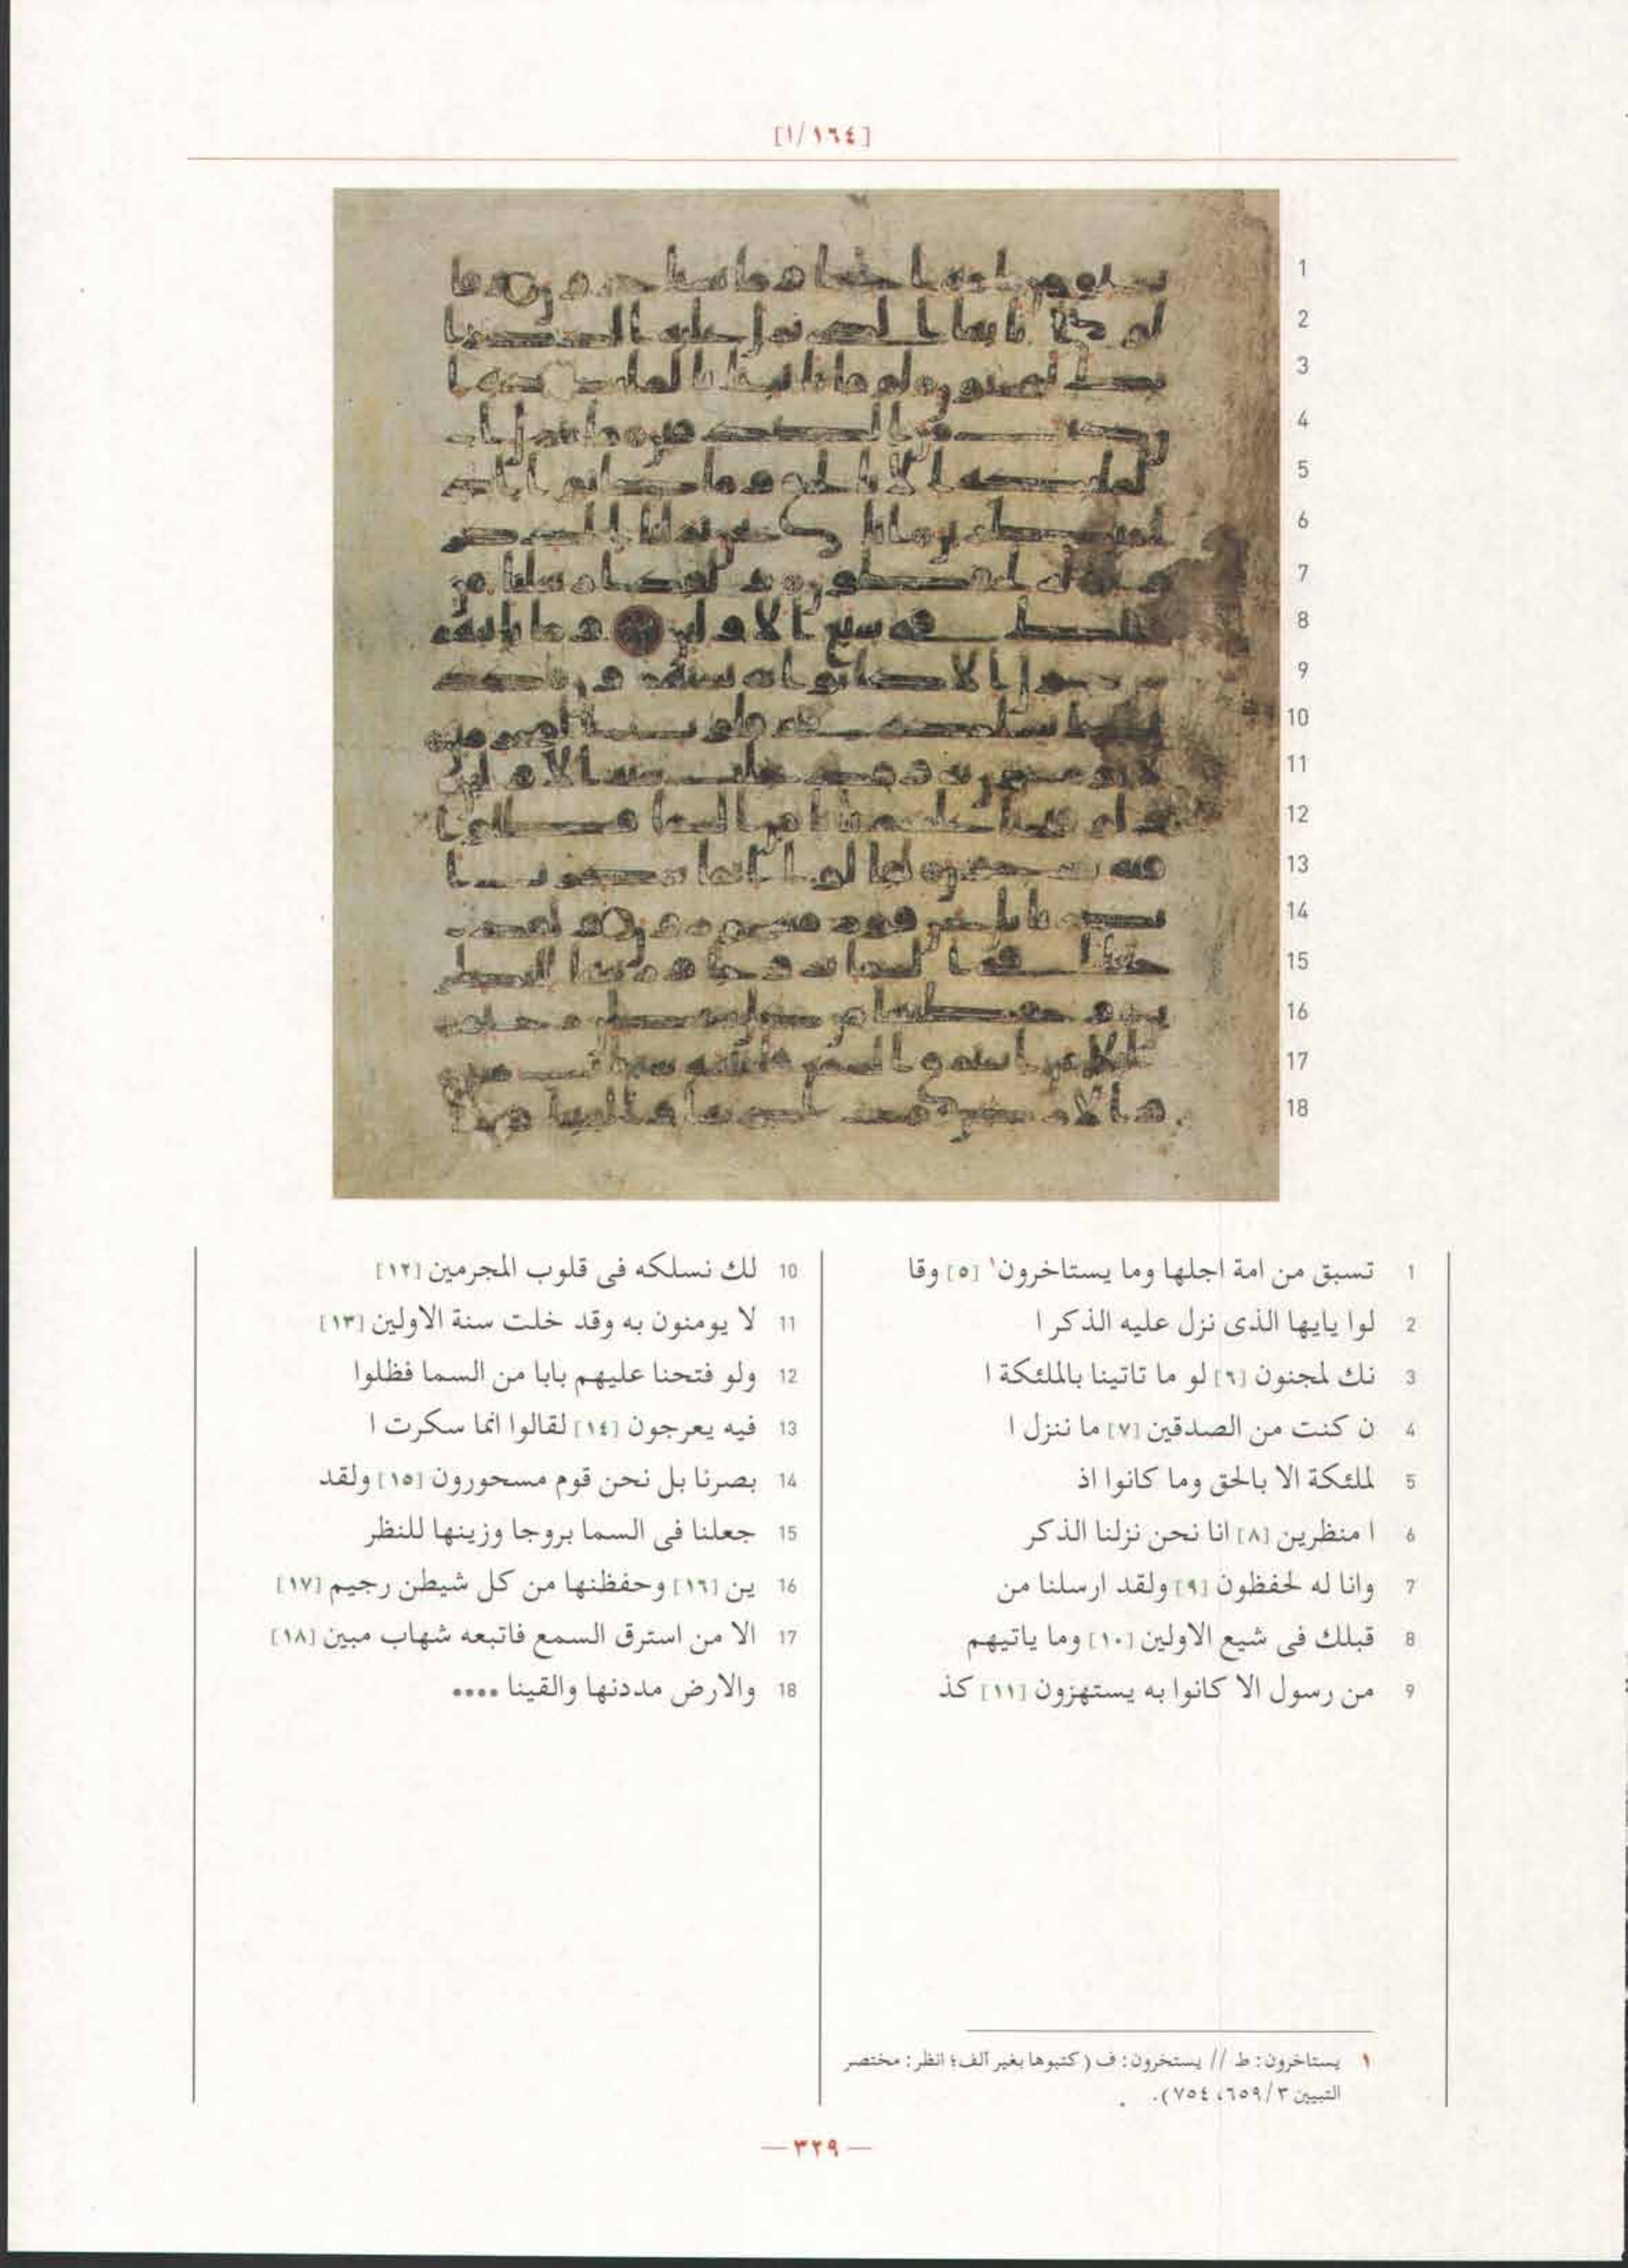 [١/١٦٤]
1 تسبق من امة اجلها وما يستاخرون١ [٥] وقا
2 لوا يايها الذى نزل عليه الذكر ا
3 نك لمجنون [٦] لو ما تاتينا بالملئكة ا
4 ن كنت من الصدقين [٧] ما ننزل ا
5 لملئكة الا بالحق وما كانوا اذ
6 ا منظرين [٨] انا نحن نزلنا الذكر
7 وانا له لحفظون [٩] ولقد ارسلنا من
8 قبلك فى شيع الاولين [١٠] وما ياتيهم
9 من رسول الا كانوا به يستهزون [١١] كذ
10 لك نسلكه فى قلوب المجرمين [١٢]
11 لا يومنون به وقد خلت سنة الاولين [١٣]
12 ولو فتحنا عليهم بابا من السما فظلوا
13 فيه يعرجون [١٤] لقالوا انما سكرت ا
14 بصرنا بل نحن قوم مسحورون [١٥] ولقد
15 جعلنا فى السما بروجا وزينها للنظر
16 ين [١٦] وحفظنها من كل شيطن رجيم [١٧]
17 الا من استرق السمع فاتبعه شهاب مبين [١٨]
18 والارض مددنها والقينا ....
١ يستاخرون: ط // يستخرون: ف (كتبوها بغير آلف؛ انظر: مختصر
التبيين ٣/٦٥٩، ٧٥٤).
— ٣٢٩ —